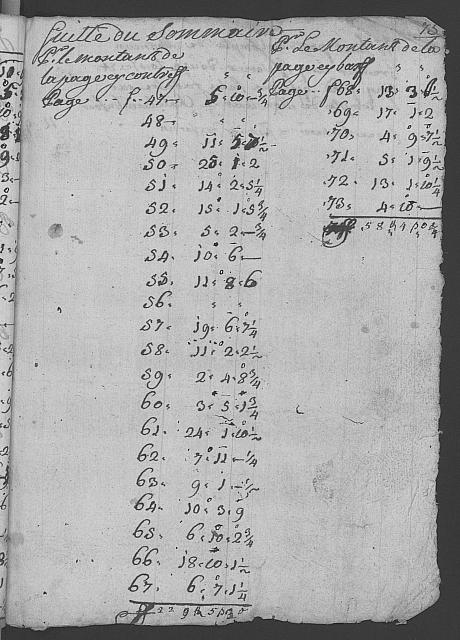 Suitte du Sommaire
Pr. le montant de
la page cy contre
Page 47 5 10 - 3/4
48
49 11 5 10 1/2
50 20 1 2
51 14 2 5 1/4
52 15 1 5 3/4
53 5 2 - 3/4
54 10 6 -
55 11 8 6
56 " "
57 19 6 7 1/4
58 11 2 2 1/2
59 2 4 8 3/4
60 3 5 1 3/4
61 24 1 10 1/2
62 7 11 - 1/4
63 9 1 - 1/2
64 10 3 9
65 6 10 2 3/4
66 18 10 1 1/2
67 6 7 1 1/4
Pr. Le Montant de la
page cy
Page 68 13 3 6 1/2
69 17 1 2
70 4 9 7 1/2
71 5 1 9 1/2
72 13 1 10 1/4
73 4 10 -